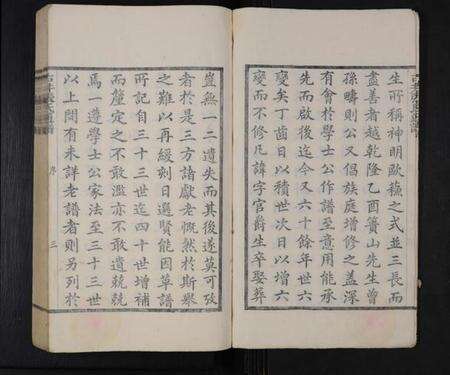 生所稱神明歐蘇之式並三長而
盡善者越乾隆乙酉簣山先生曾
孫疇則公又倡族庭增修之蓋深
有會於學士公作譜至意用能承
先啟後迄今又六十餘年世六
變矣丁齒日以積世次日以增六
變而不修凡諱字官爵生卒娶葬
豈無一二遺失而其後遂莫可攷
者於是三方諸獻老慨然於斯舉
之難以再緩刻日選賢能因草譜
所記自三十三世迄四十世增補
而釐定之不敢濫亦不敢遺兢兢
焉一遵學士公家法至三十三世
以上間有未詳老譜者則另列於
序
三